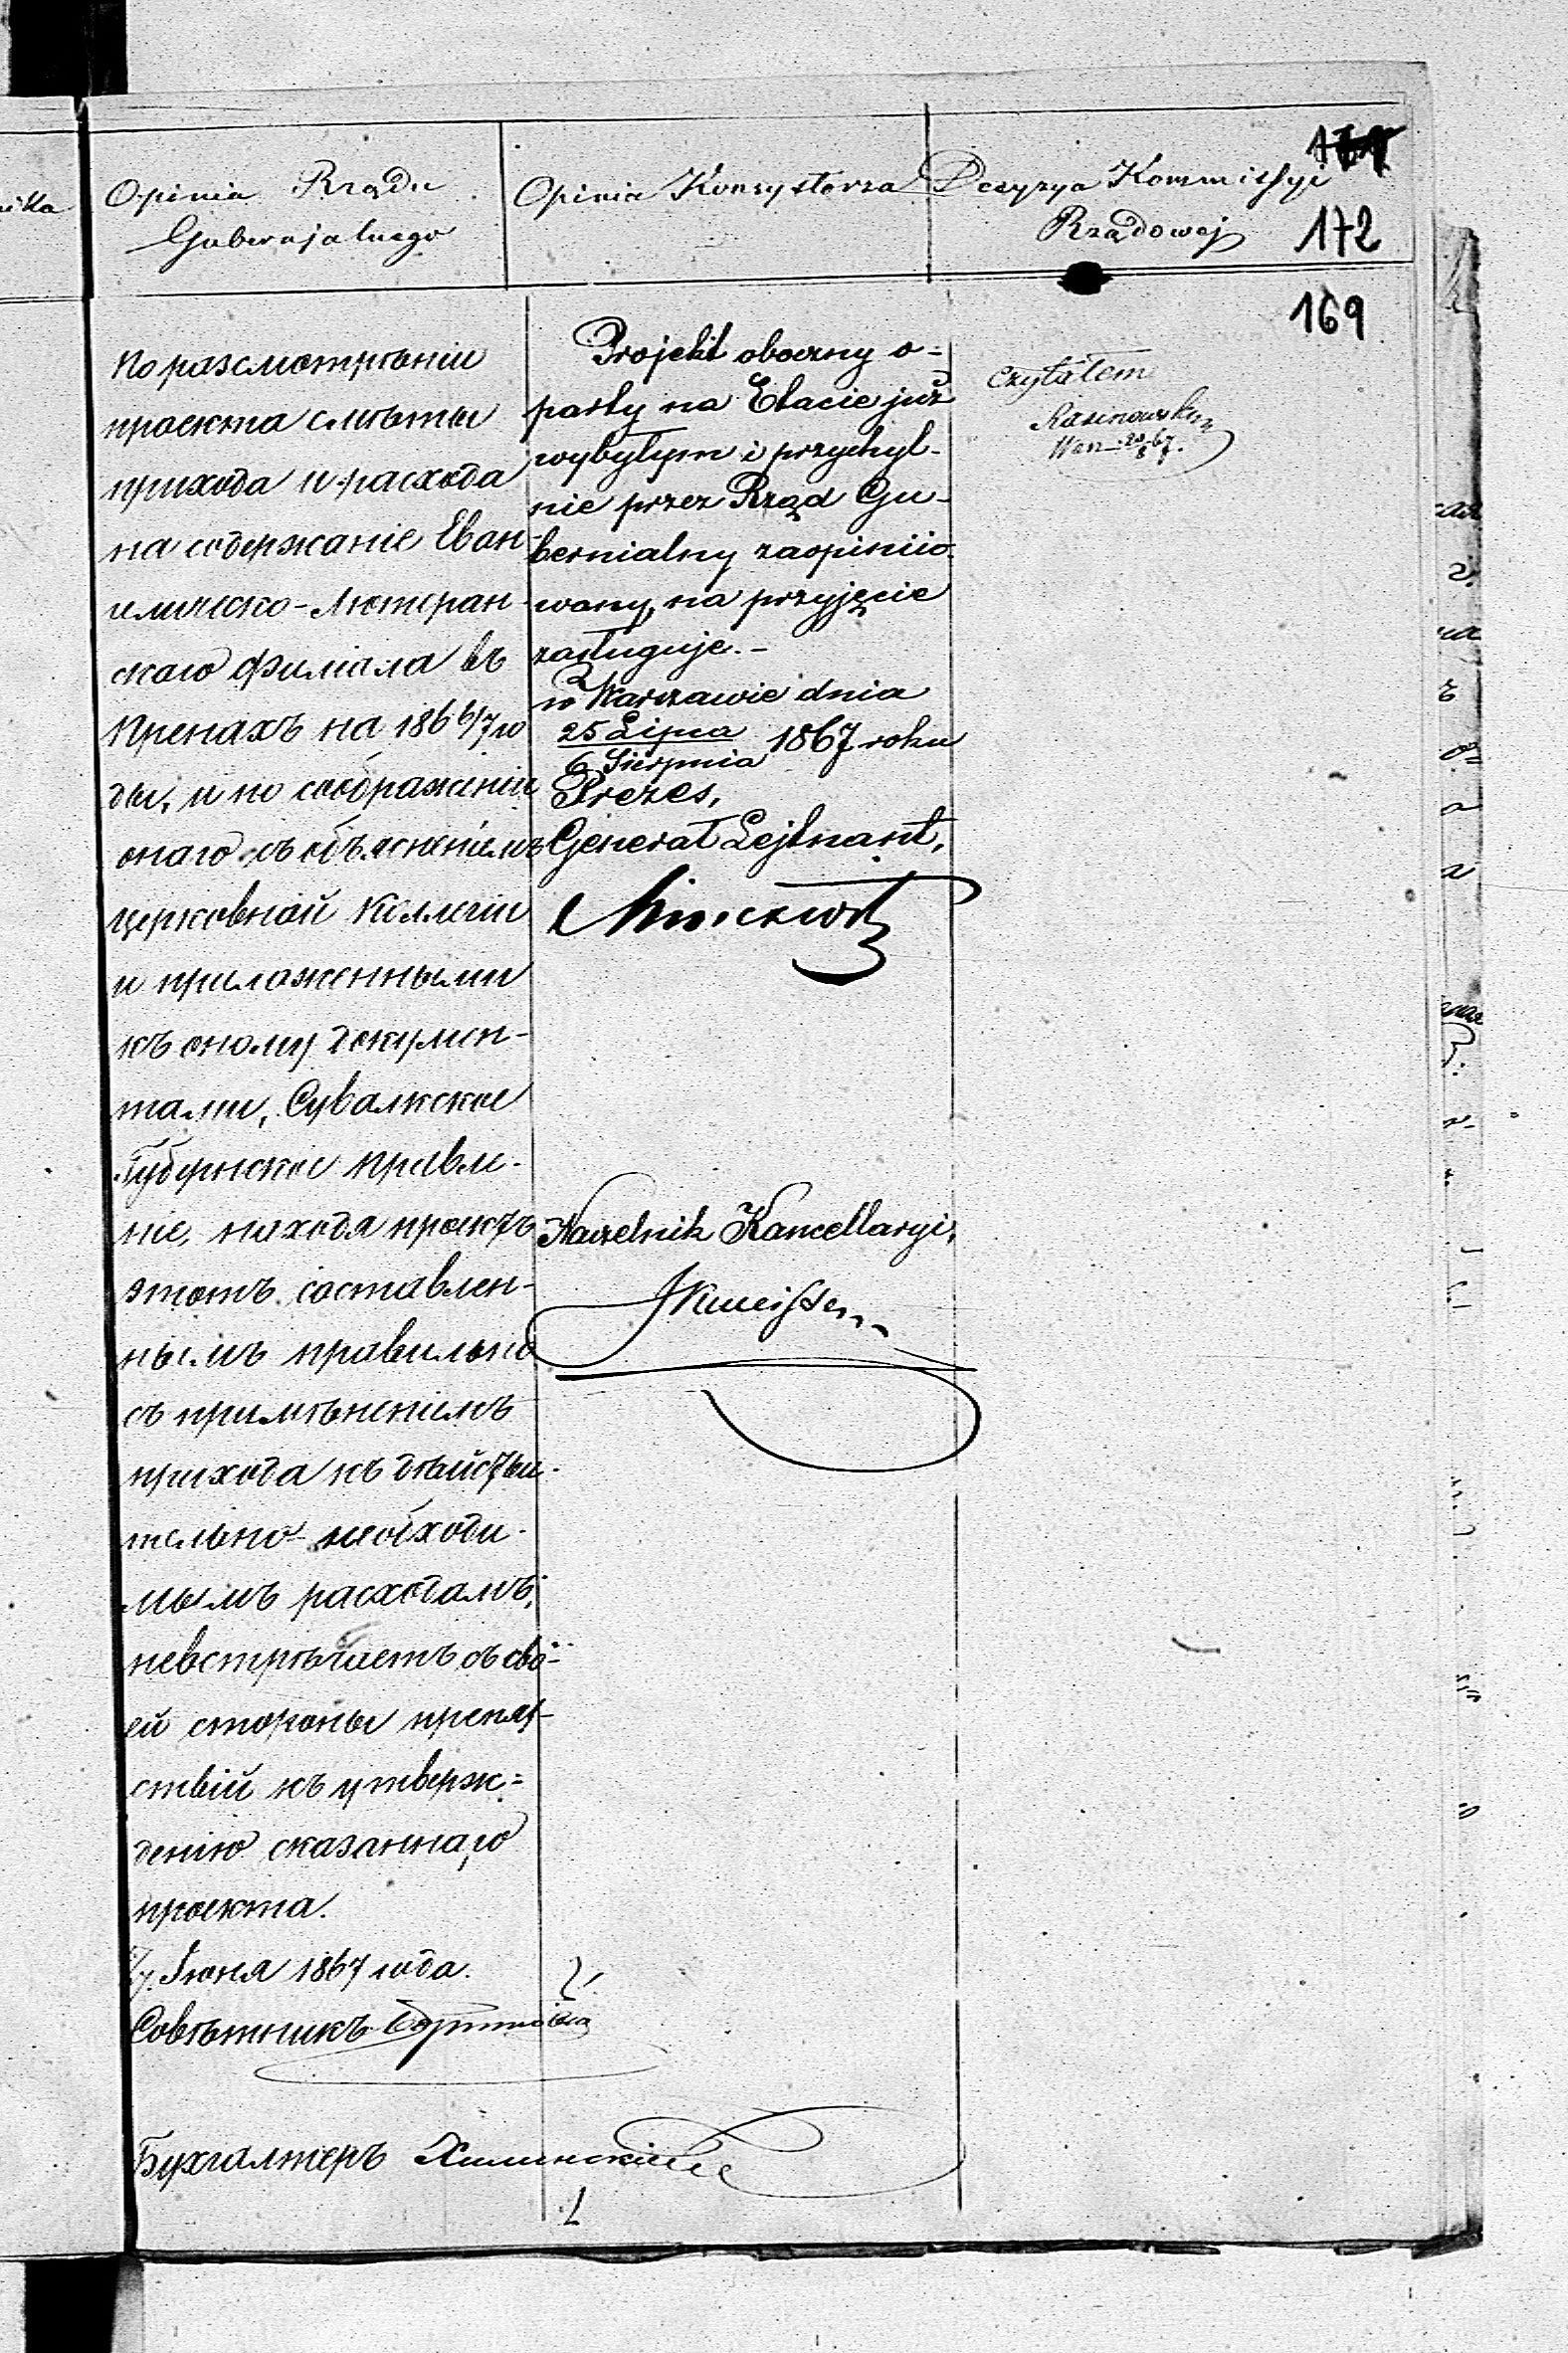 Opinia Rządu
Gubernjalnego
Opinia Konsystorza
Decyzya Kommissyi
Rządowej
172
169
По разсмотрѣніи
проекта смѣты
прихода и расхода
на содержаніе Еван-
гелическо-Лютеран-
скаго филіала въ
Пренахъ на 1866/7 го
ды, и по соображеніи
онаго съ объясненіемъ
церковной коллегіи
и приложенными
къ оному докумен-
тами, Сувалкское
Губернское правле-
ніе, находя проектъ
этотъ составлен-
нымъ правильно
съ примѣненіемъ
прихода къ дѣйстви-
тельно-необходи-
мымъ расходамъ,
невстрѣчаетъ съ сво-
ей стороны препят-
ствій къ утверж=
денію сказаннаго
проекта.
Іюня 1867 года.
Совѣтникъ
Бухгалтеръ
Projekt oboczny o=
party na Etacie już
wybyłym i przychyl-
nie przez Rząd Gu-
bernialny zaopinijo-
wany, na przyjęcie
zasługuje.-
w Warszawie dnia
25 Lipca
6 Sierpnia 1867 roku
Prezes,
Generał Lejtnant,
Naczelnik Kancellaryi,
Czytałem